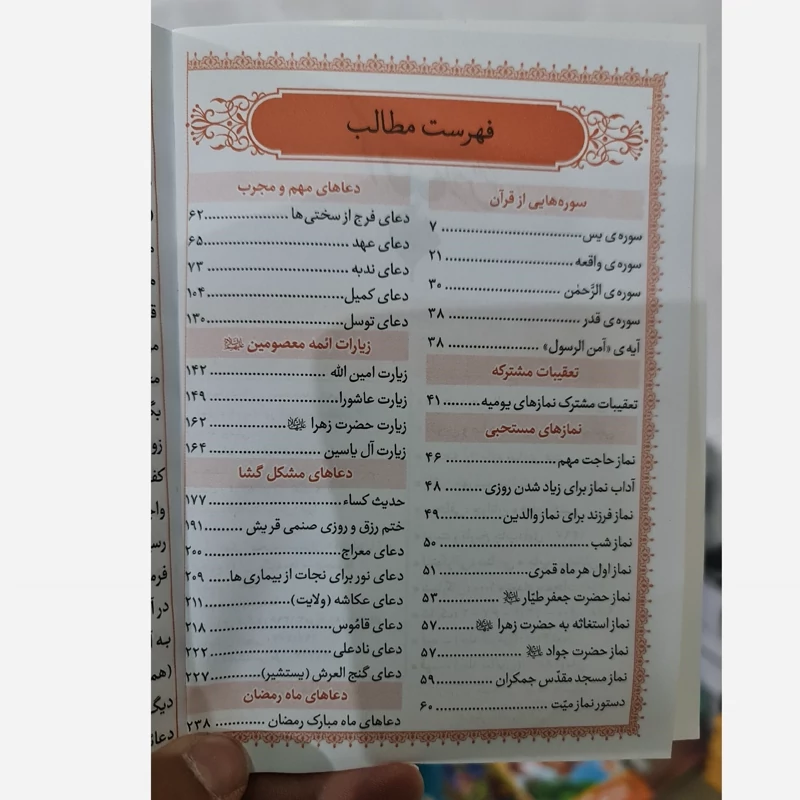 فهرست مطالب
سوره‌هایی از قرآن
سوره‌ی یس.............................. ۷
سوره‌ی واقعه .......................... ۲۱
سوره‌ی الرَّحمٰن ...................... ۳۰
سوره‌ی قدر ............................ ۳۸
آیه‌ی «آمن الرسول» .................... ۳۸
تعقیبات مشترکه
تعقیبات مشترک نمازهای یومیه.........۴۱
نمازهای مستحبی
نماز حاجت مهم......................... ۴۶
آداب نماز برای زیاد شدن روزی ........ ۴۸
نماز فرزند برای نماز والدین...........۴۹
نماز شب ............................... ۵۰
نماز اول هر ماه قمری.................. ۵۱
نماز حضرت جعفر طیّار ................ ۵۳
نماز استغاثه به حضرت زهرا .........۵۷
نماز حضرت جواد ...................... ۵۷
نماز مسجد مقدّس جمکران ............. ۵۹
دستور نماز میّت ....................... ۶۰
دعاهای مهم و مجرب
دعای فرج از سختی‌ها ....................۶۲
دعای عهد ..............................۶۵
دعای ندبه ............................. ۷۳
دعای کمیل.............................۱۰۴
دعای توسل.............................۱۳۰
زیارات ائمه معصومین
زیارت امین الله ....................... ۱۴۲
زیارت عاشورا.......................... ۱۴۹
زیارت حضرت زهرا .................. ۱۶۲
زیارت آل یاسین ....................... ۱۶۴
دعاهای مشکل گشا
حدیث کساء............................ ۱۷۷
ختم رزق و روزی صنمی قریش .........۱۹۱
دعای معراج............................ ۲۰۰
دعای نور برای نجات از بیماری ها..... ۲۰۹
دعای عکاشه (ولایت)...................۲۱۱
دعای قاموس........................... ۲۱۸
دعای نادعلی ........................... ۲۲۲
دعای گنج العرش (یستشیر)............۲۲۷
دعاهای ماه رمضان
دعاهای ماه مبارک رمضان ........... ۲۳۸